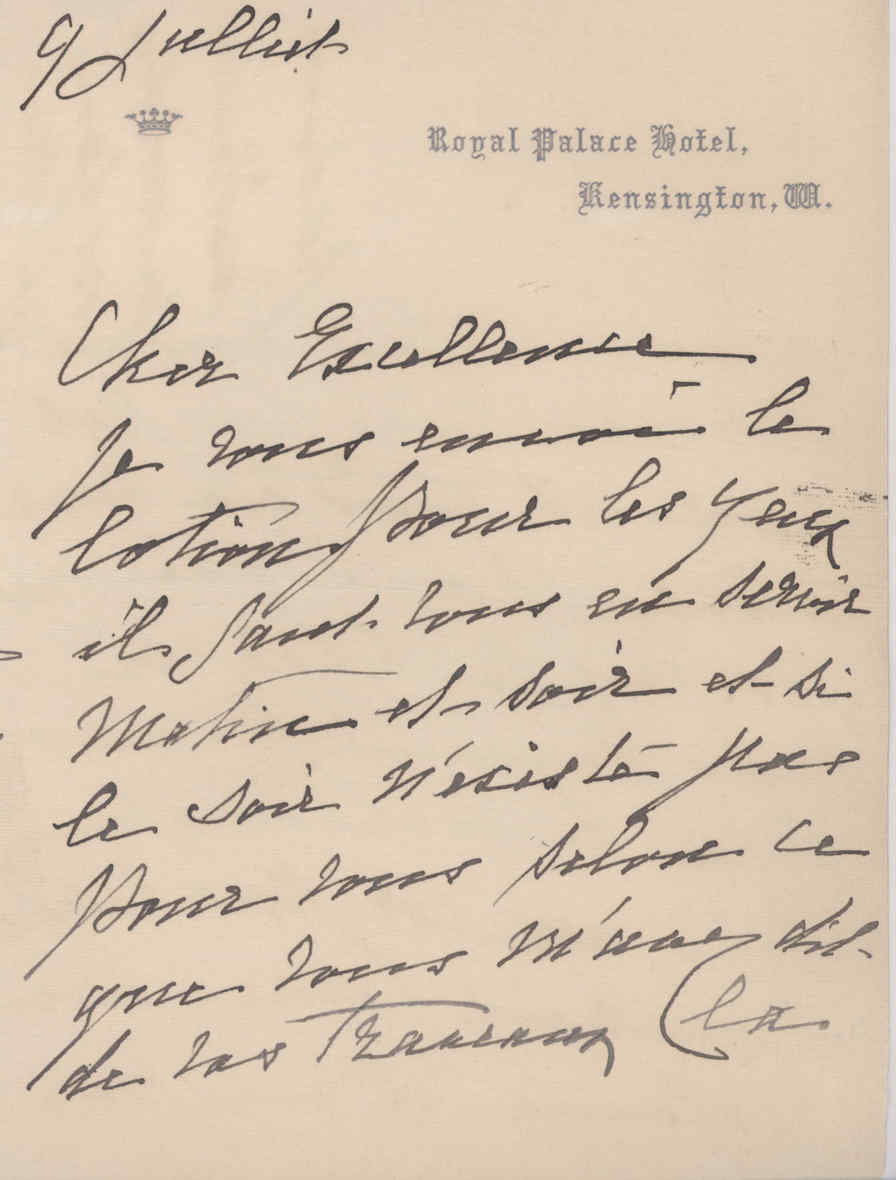 9 Juillet
Royal Palace Hotel,
Kensington, W.
Cher Excellence
Je vous envoi le
lotion pour les yeux
il faut vous en servir
Matin et soir et si
le soir n'existe pas
pour vous selon ce
que vous m'avez dit
de vos Travaux (la